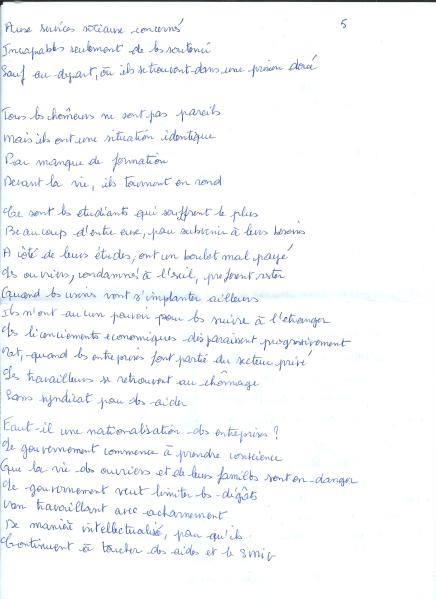 5
Aux services sociaux concernés
Incapables seulement de les soutenir
Sauf au départ, où ils se trouvent dans une prison dorée
Tous les chômeurs ne sont pas pareils
Mais ils ont une situation identique
Par manque de formation
Devant la vie, ils tournent en rond
Ce sont les étudiants qui souffrent le plus
Beaucoup d'entre eux, pour subvenir à leurs besoins
A côté de leurs études, ont un boulot mal payé
Les ouvriers, condamnés à l'exil, préfèrent rester
Quand les usines vont s'implanter ailleurs
Ils n'ont aucun pouvoir pour les suivre à l'étranger
Les licenciements économiques disparaissent progressivement
Et, quand les entreprises font partie du secteur privé
Les travailleurs se retrouvent au chômage
Sans syndicat pour les aider
Faut-il une nationalisation des entreprises ?
Le gouvernement commence à prendre conscience
Que la vie des ouvriers et de leurs familles sont en danger
Le gouvernement veut limiter les dégâts
En travaillant avec acharnement
De manière intellectualisé, pour qu'ils
Continuent à toucher des aides et le SMIC